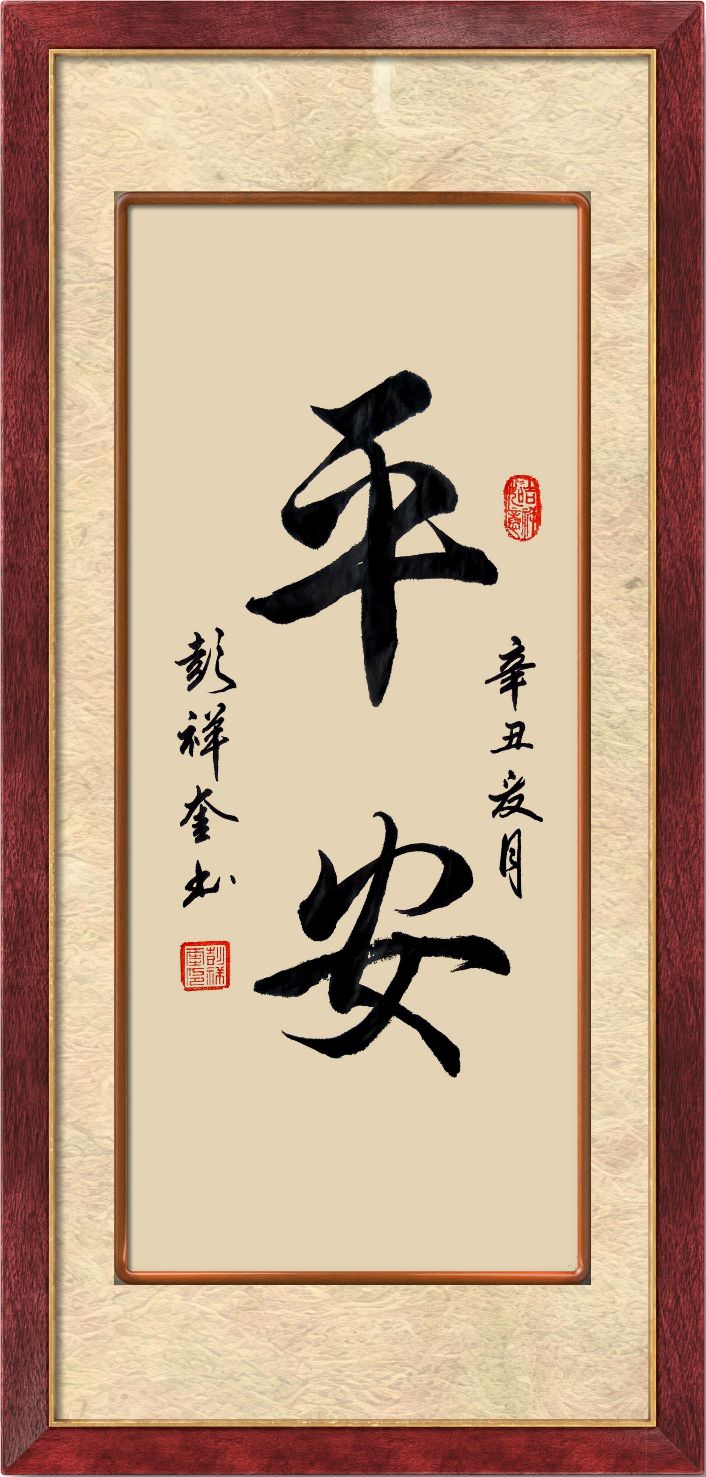 平安
辛丑夏月
彭祥奎书